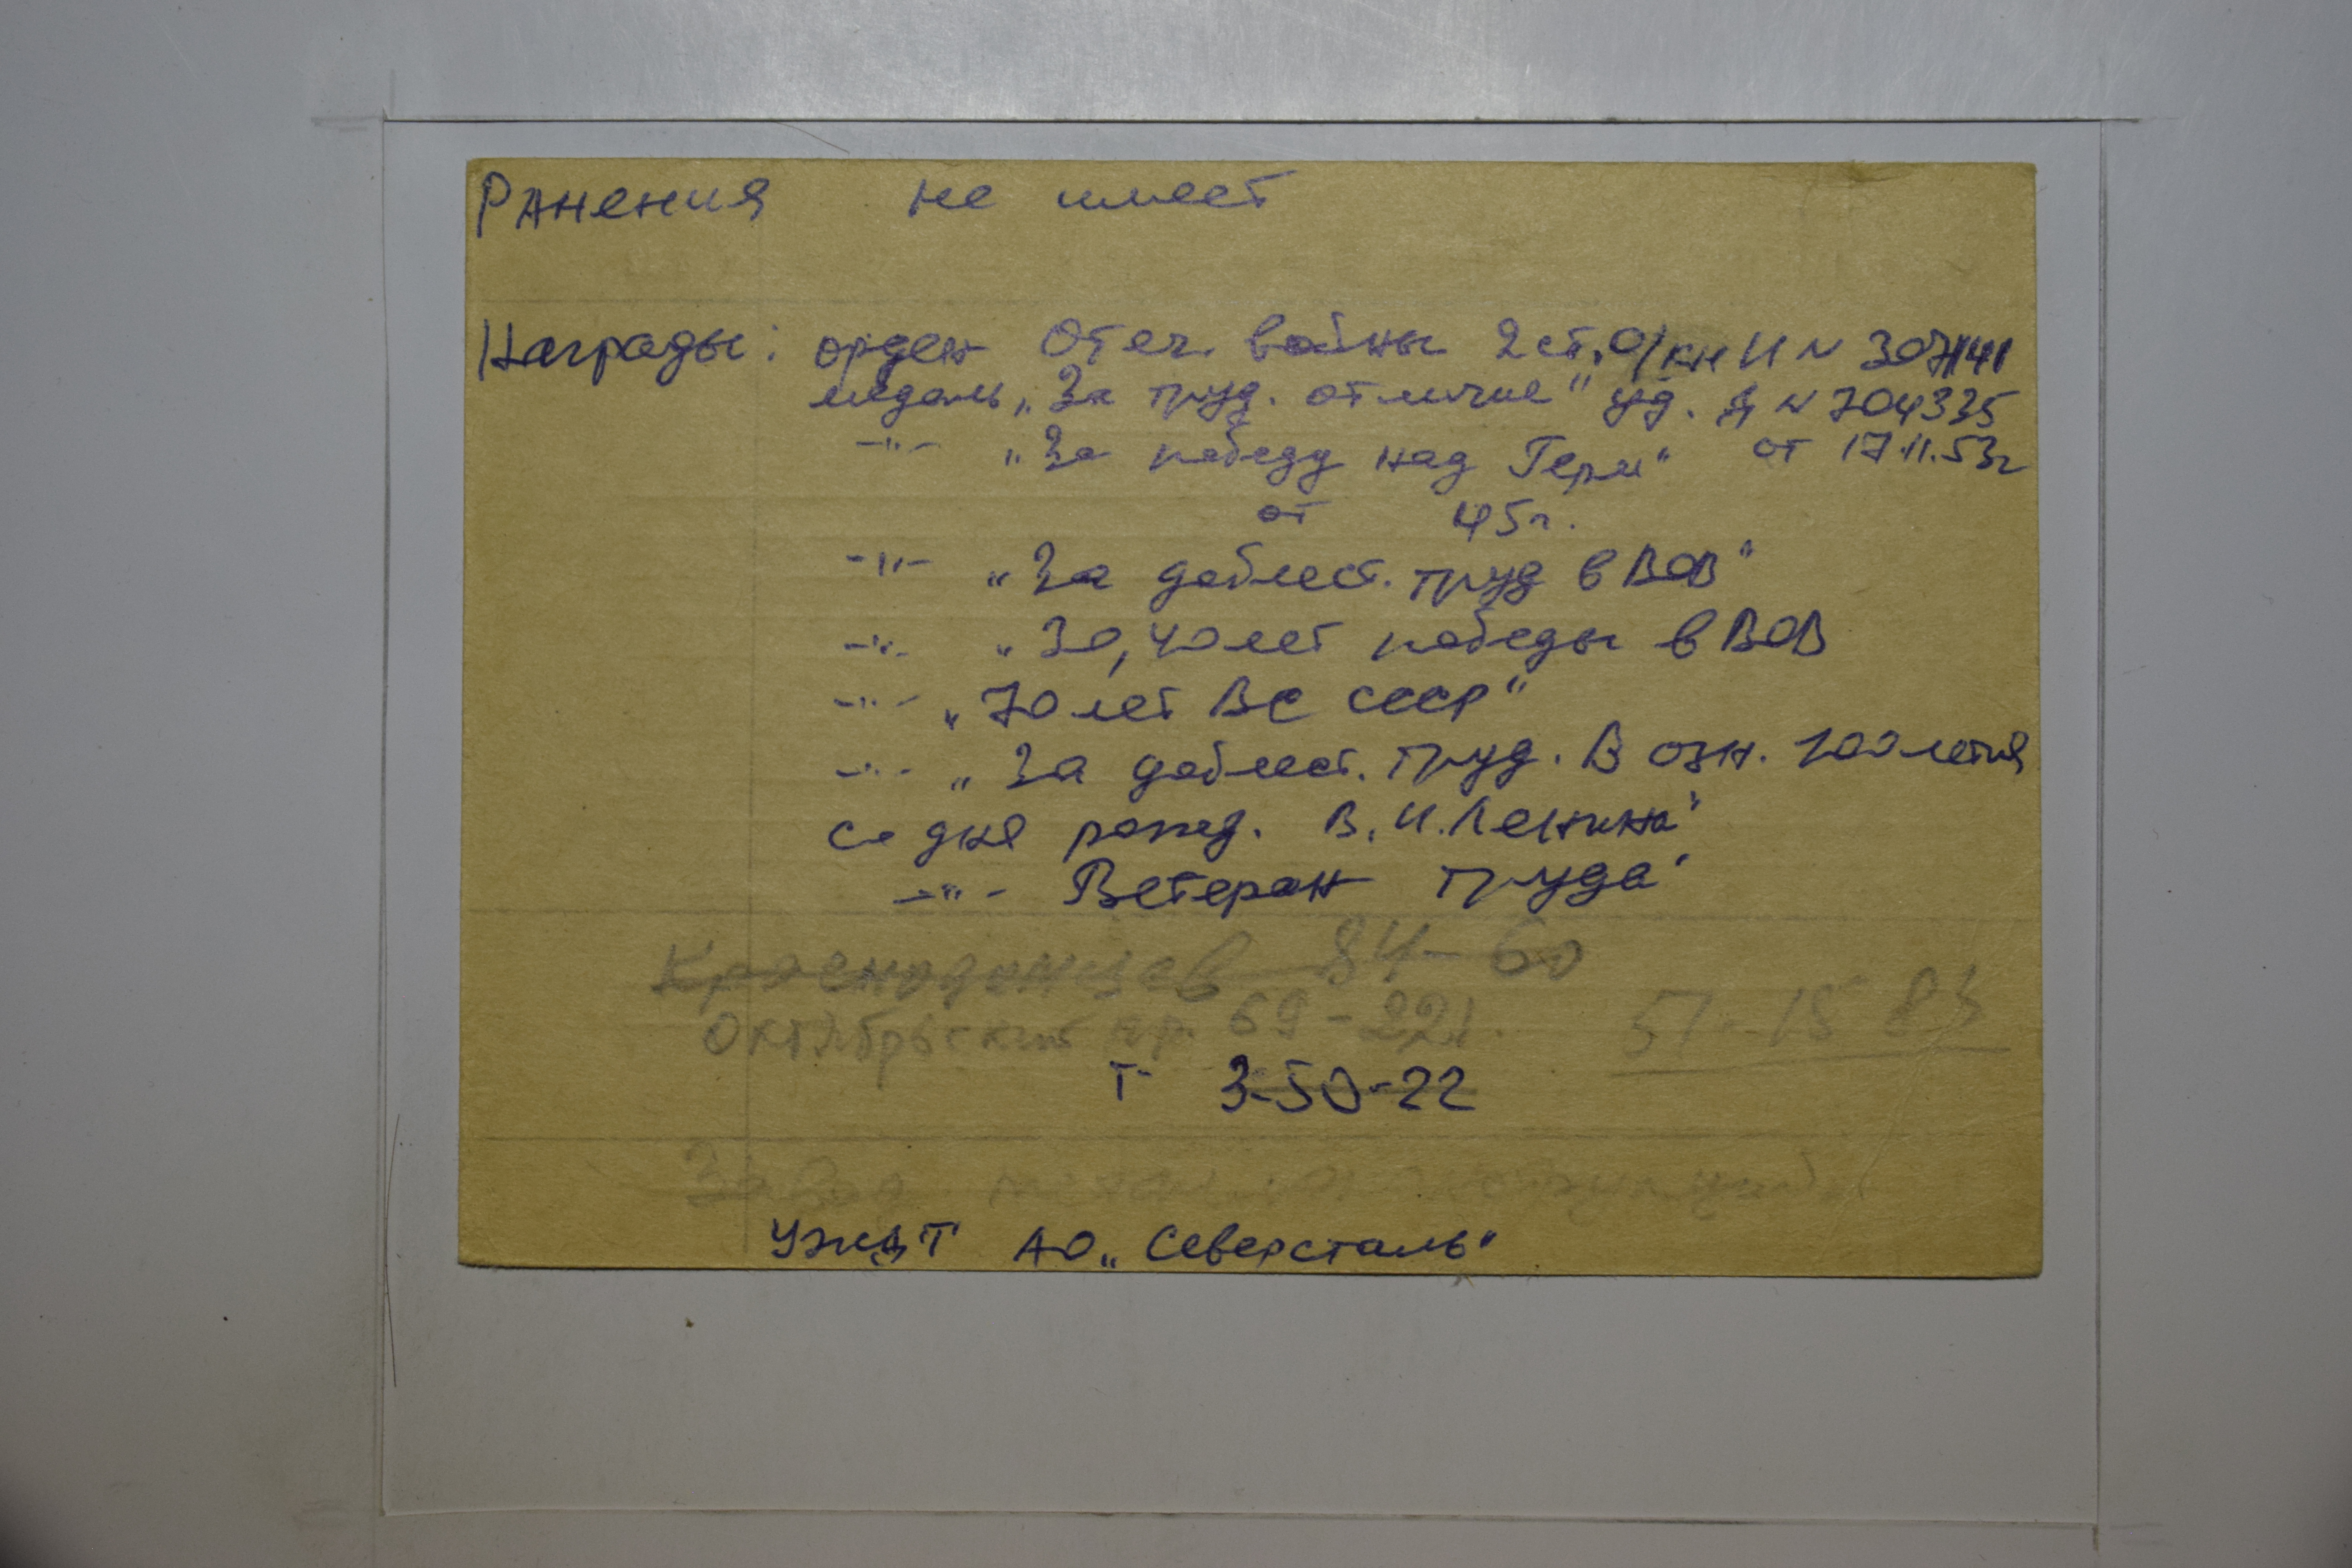 Ранения не имеет
Награды: орден Отеч. войны 2 ст. О/кн И N 307141
медаль „За труд. отличие" уд. Д N 704335
-"- „За победу над Герм" от 17.11.53г
от 45г.
-"- „За доблест. труд в ВОВ"
-"- „30,40 лет победы в ВОВ
-"- „70 лет ВС СССР"
-"- „За доблест. труд. В озн. 100 летия
со дня рожд. В.И.Ленина"
-"- Ветеран труда"
Краснодонцев 84-60
Октябрьский пр. 69-221. 51-15 83
т- 3-50-22
Завод
УЖДТ АО „Северсталь"